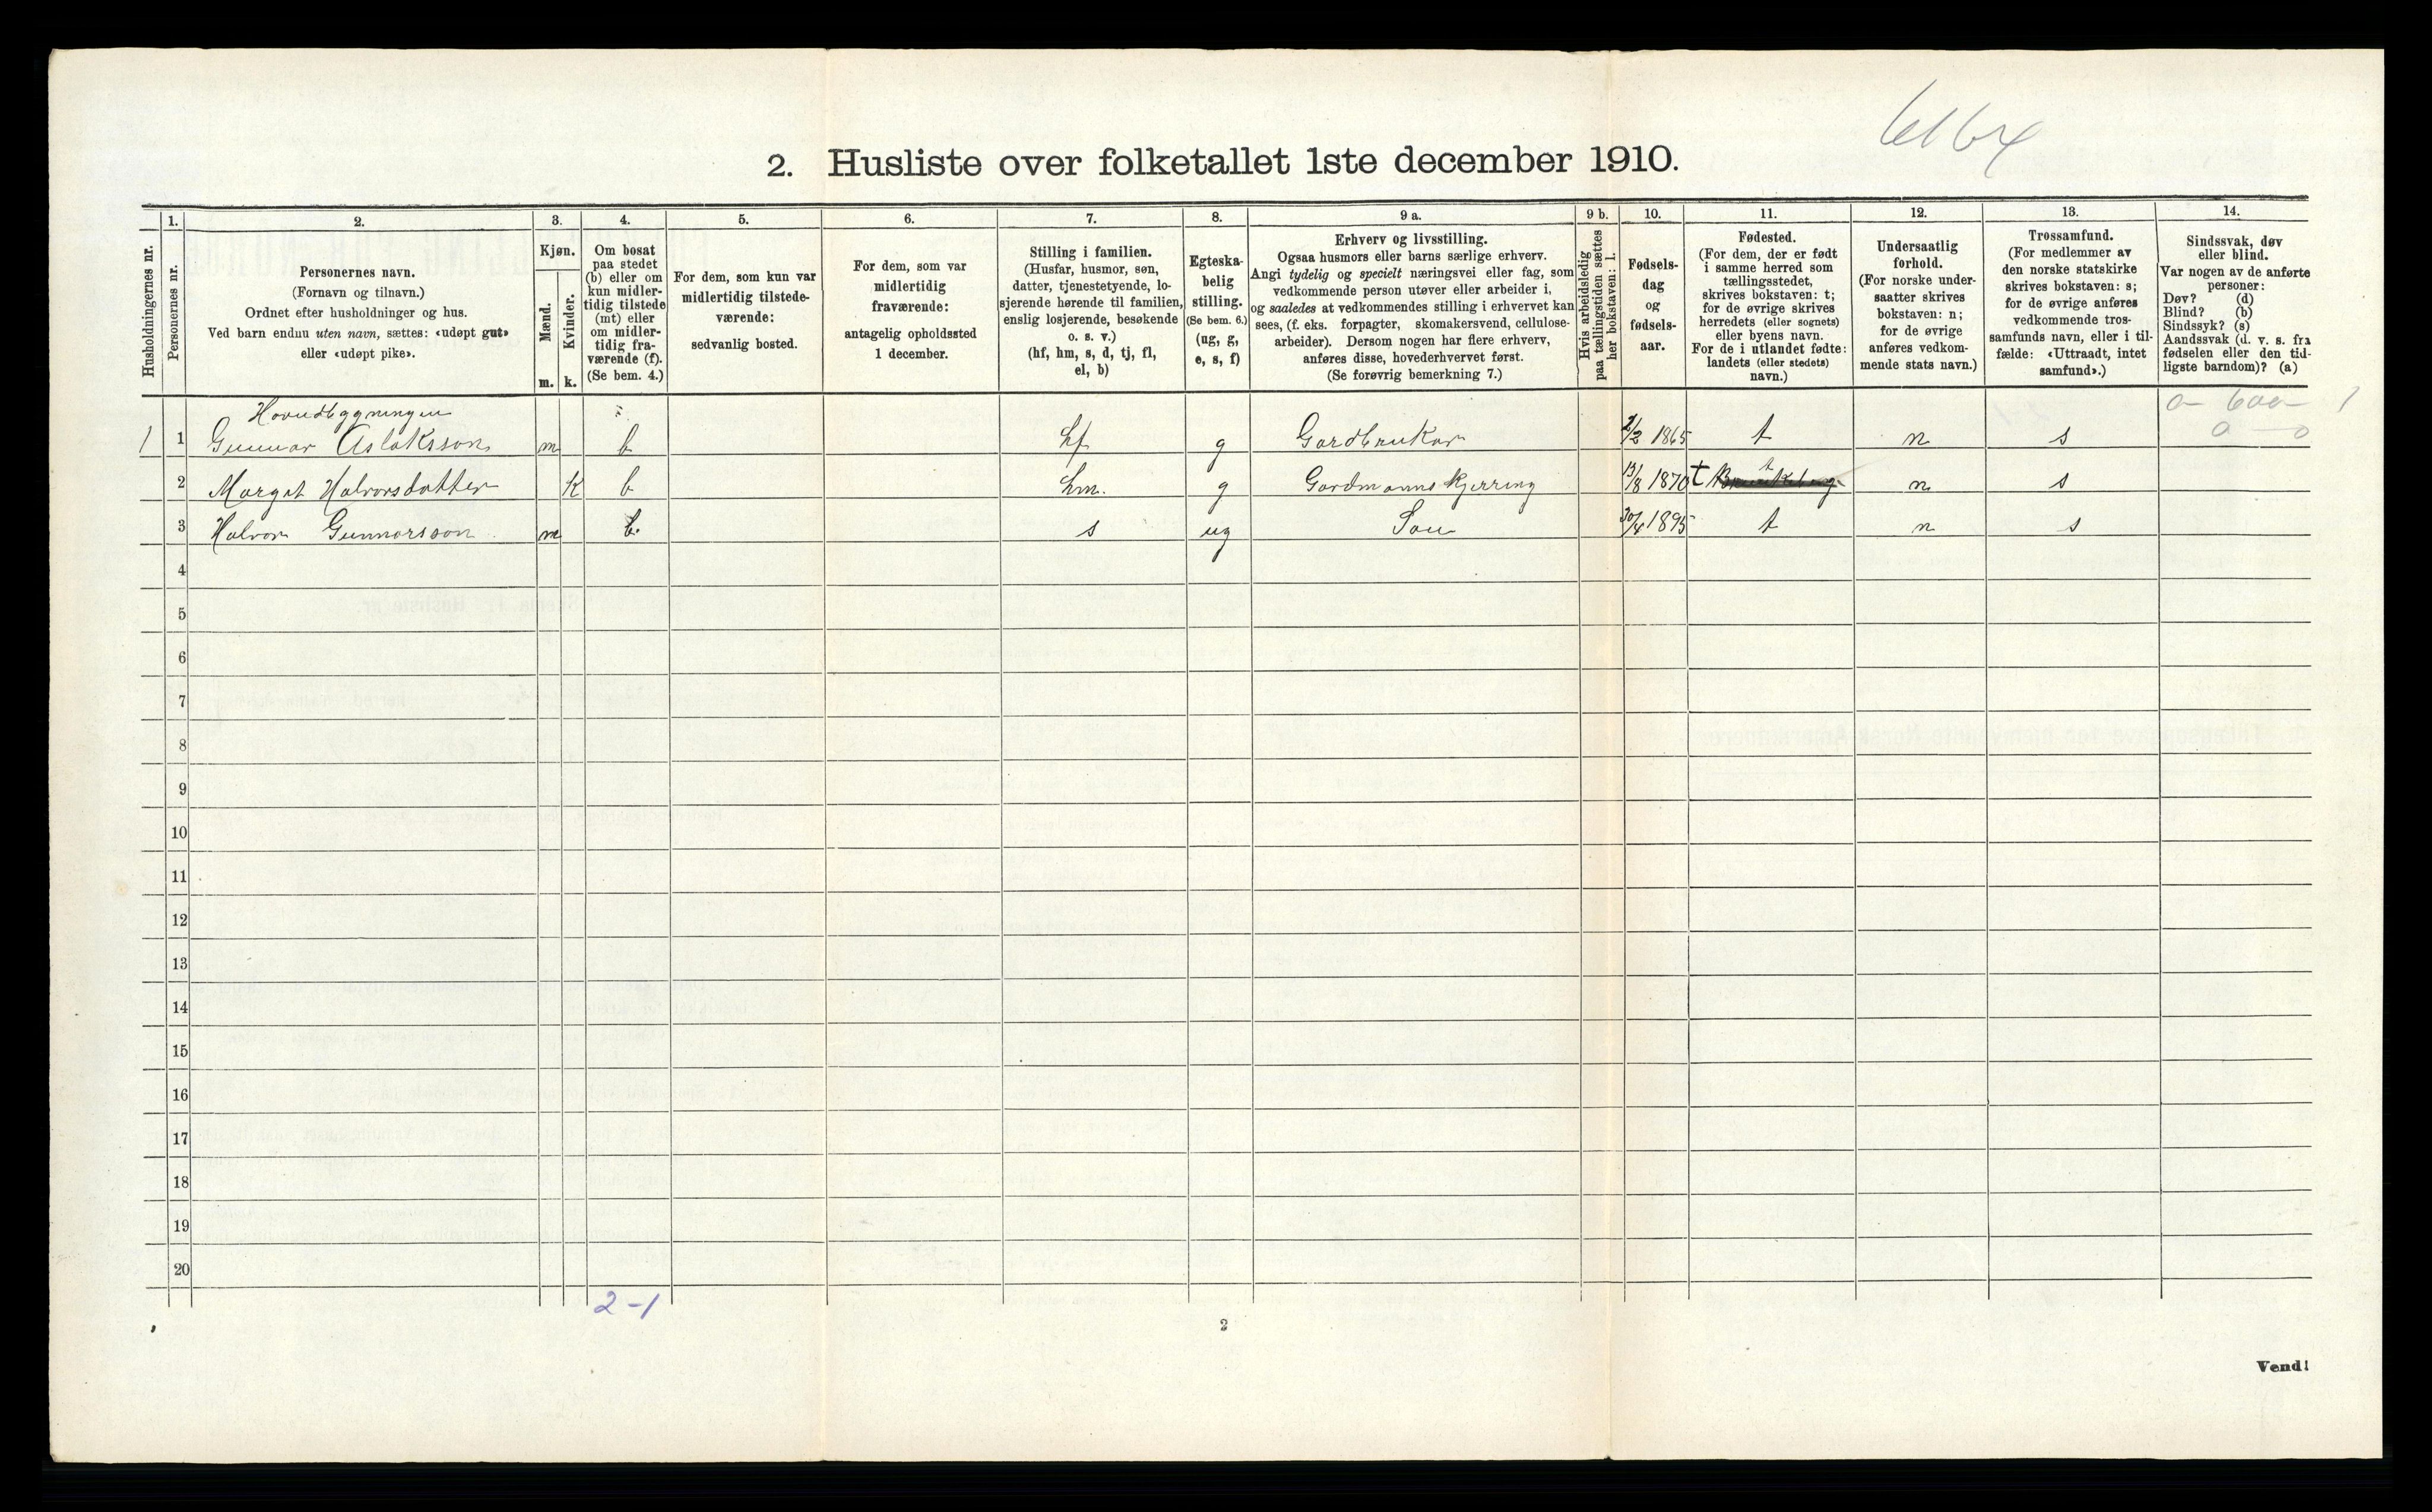 2. Husliste over folketallet 1ste december 1910.
1. 2. 3. 4. 5. 6. 7. 8. 9 a. 9 b. 10. 11. 12. 13. 14.
Husholdningernes nr.
Personernes nr.
Personernes navn.
(Fornavn og tilnavn.)
Ordnet efter husholdninger og hus.
Ved barn endnu uten navn, sættes: «udøpt gut»
eller «udøpt pike».
Kjøn.
Mænd.
Kvinder.
m. k.
Om bosat
paa stedet
(b) eller om
kun midler-
tidig tilstede
(mt) eller
om midler-
tidig fra-
værende (f).
(Se bem. 4.)
For dem, som kun var
midlertidig tilstede-
værende:
sedvanlig bosted.
For dem, som var
midlertidig
fraværende:
antagelig opholdssted
1 december.
Stilling i familien.
(Husfar, husmor, søn,
datter, tjenestetyende, lo-
sjerende hørende til familien,
enslig losjerende, besøkende
o. s. v.)
(hf, hm, s, d, tj, fl,
el, b)
Egteska-
belig
stilling.
(Se bem. 6.)
(ug, g,
e, s, f)
Erhverv og livsstilling.
Ogsaa husmors eller barns særlige erhverv.
Angi tydelig og specielt næringsvei eller fag, som
vedkommende person utøver eller arbeider i,
og saaledes at vedkommendes stilling i erhvervet kan
sees, (f. eks. forpagter, skomakersvend, cellulose-
arbeider). Dersom nogen har flere erhverv,
anføres disse, hovederhvervet først.
(Se forøvrig bemerkning 7.)
Hvis arbeidsledig
paa tællingstiden sættes
her bokstaven: l.
Fødsels-
dag
og
fødsels-
aar.
Fødested.
(For dem, der er født
i samme herred som
tællingsstedet,
skrives bokstaven: t;
for de øvrige skrives
herredets (eller sognets)
eller byens navn.
For de i utlandet fødte:
landets (eller stedets)
navn.)
Undersaatlig
forhold.
(For norske under-
saatter skrives
bokstaven: n;
for de øvrige
anføres vedkom-
mende stats navn.)
Trossamfund.
(For medlemmer av
den norske statskirke
skrives bokstaven: s;
for de øvrige anføres
vedkommende tros-
samfunds navn, eller i til-
fælde: «Uttraadt, intet
samfund».)
Sindssvak, døv
eller blind.
Var nogen av de anførte
personer:
Døv? (d)
Blind? (b)
Sindssyk? (s)
Aandssvak (d. v. s. fra
fødselen eller den tid-
ligste barndom)? (a)
Hovudbygningen
1 1 Gunnar Aslaksson m b hf g Gardbrukar 2/2 1865 t n s
2 Margit Halvorsdatter K b hm. g Gardmannskjerring 13/8 1870 t n s
3 Halvor Gunnarsson m b. s ug Son 30/4 1895 t n s
4
5
6
7
8
9
10
11
12
13
14
15
16
17
18
19
20
2-1
2
Vend!